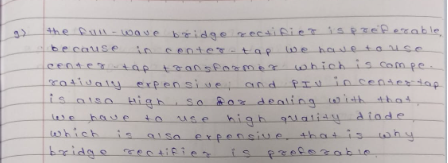 9) the full-wave bridge rectifier is preferable,
because in center-tap we have to use
center-tap transformer which is compe-
rativaly expensive, and PIV in center tap
is also High, so for dealing with that,
we have to use high quality diode
which is also expensive. that is why
bridge rectifier is preferable.